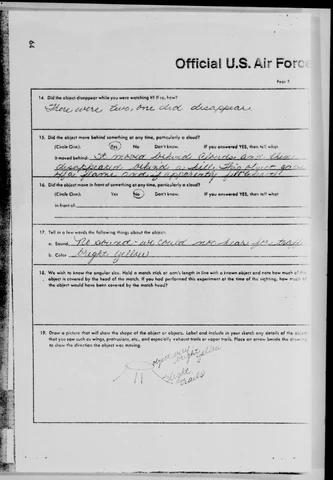 64
Official U.S. Air Force
Page 5
14. Did the object disappear while you were watching it? If so, how?
There were two, one did disappear
15. Did the object move behind something at any time, particularly a cloud?
(Circle One). Yes No Don't know. If you answered YES, then tell what
it moved behind: It moved behind clouds and then
disappeared behind a hill. This object gave
off a flame and apparently
16. Did the object move in front of something at any time, particularly a cloud?
(Circle One). Yes No Don't know. If you answered YES, then tell what
in front of:
17. Tell in a few words the following things about the object:
a. Sound No sound - we could not hear
b. Color bright yellow
18. We wish to know the angular size. Hold a match stick at arm's length in line with a known object and note how much of the
object is covered by the head of the match. If you had performed this experiment at the time of the sighting, how much of
the object would have been covered by the match head?
19. Draw a picture that will show the shape of the object or objects. Label and include in your sketch any details of the object
that you saw such as wings, protrusions, etc., and especially exhaust trails or vapor trails. Place an arrow beside the drawing
to show the direction the object was moving.
object very
bright yellow
trails